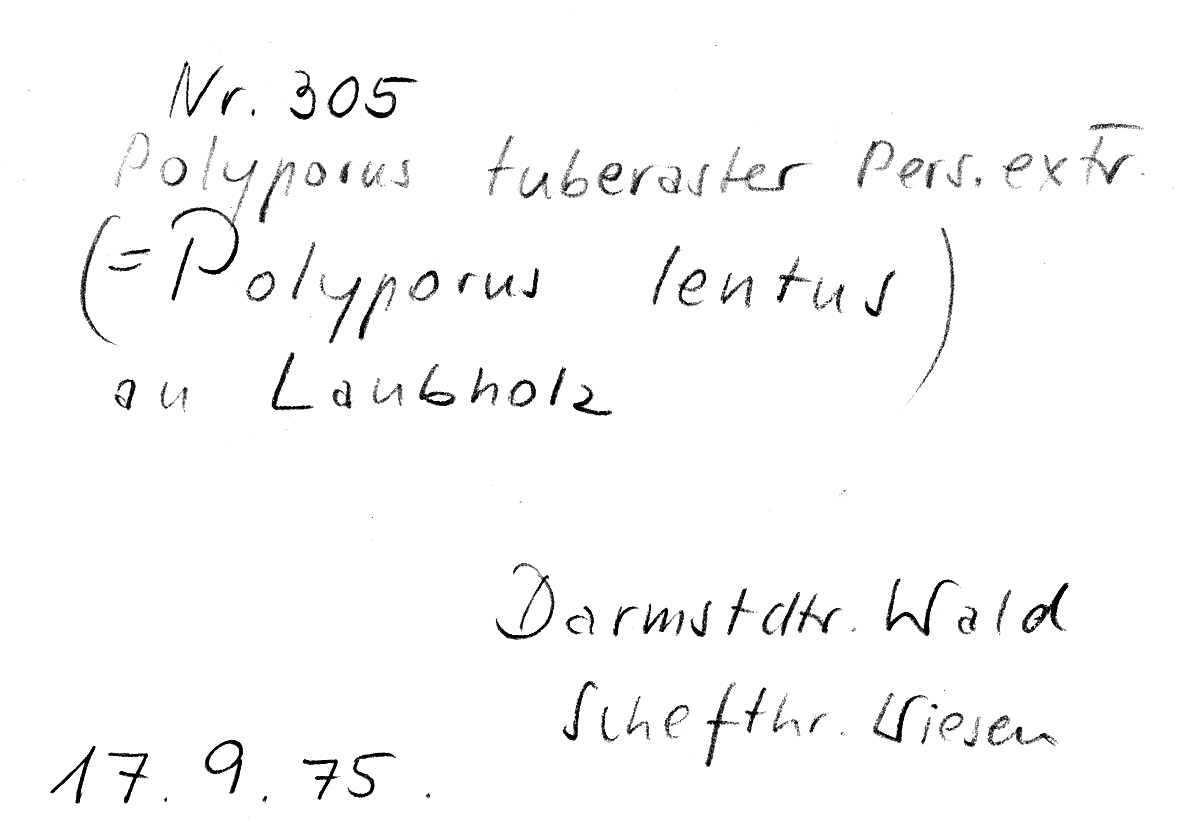 Nr. 305
Polyporus tuberaster Pers. ex Fr.
(= Polyporus lentus)
an Laubholz
Darmstdtr. Wald
Schefthr. Wiesen
17. 9. 75.